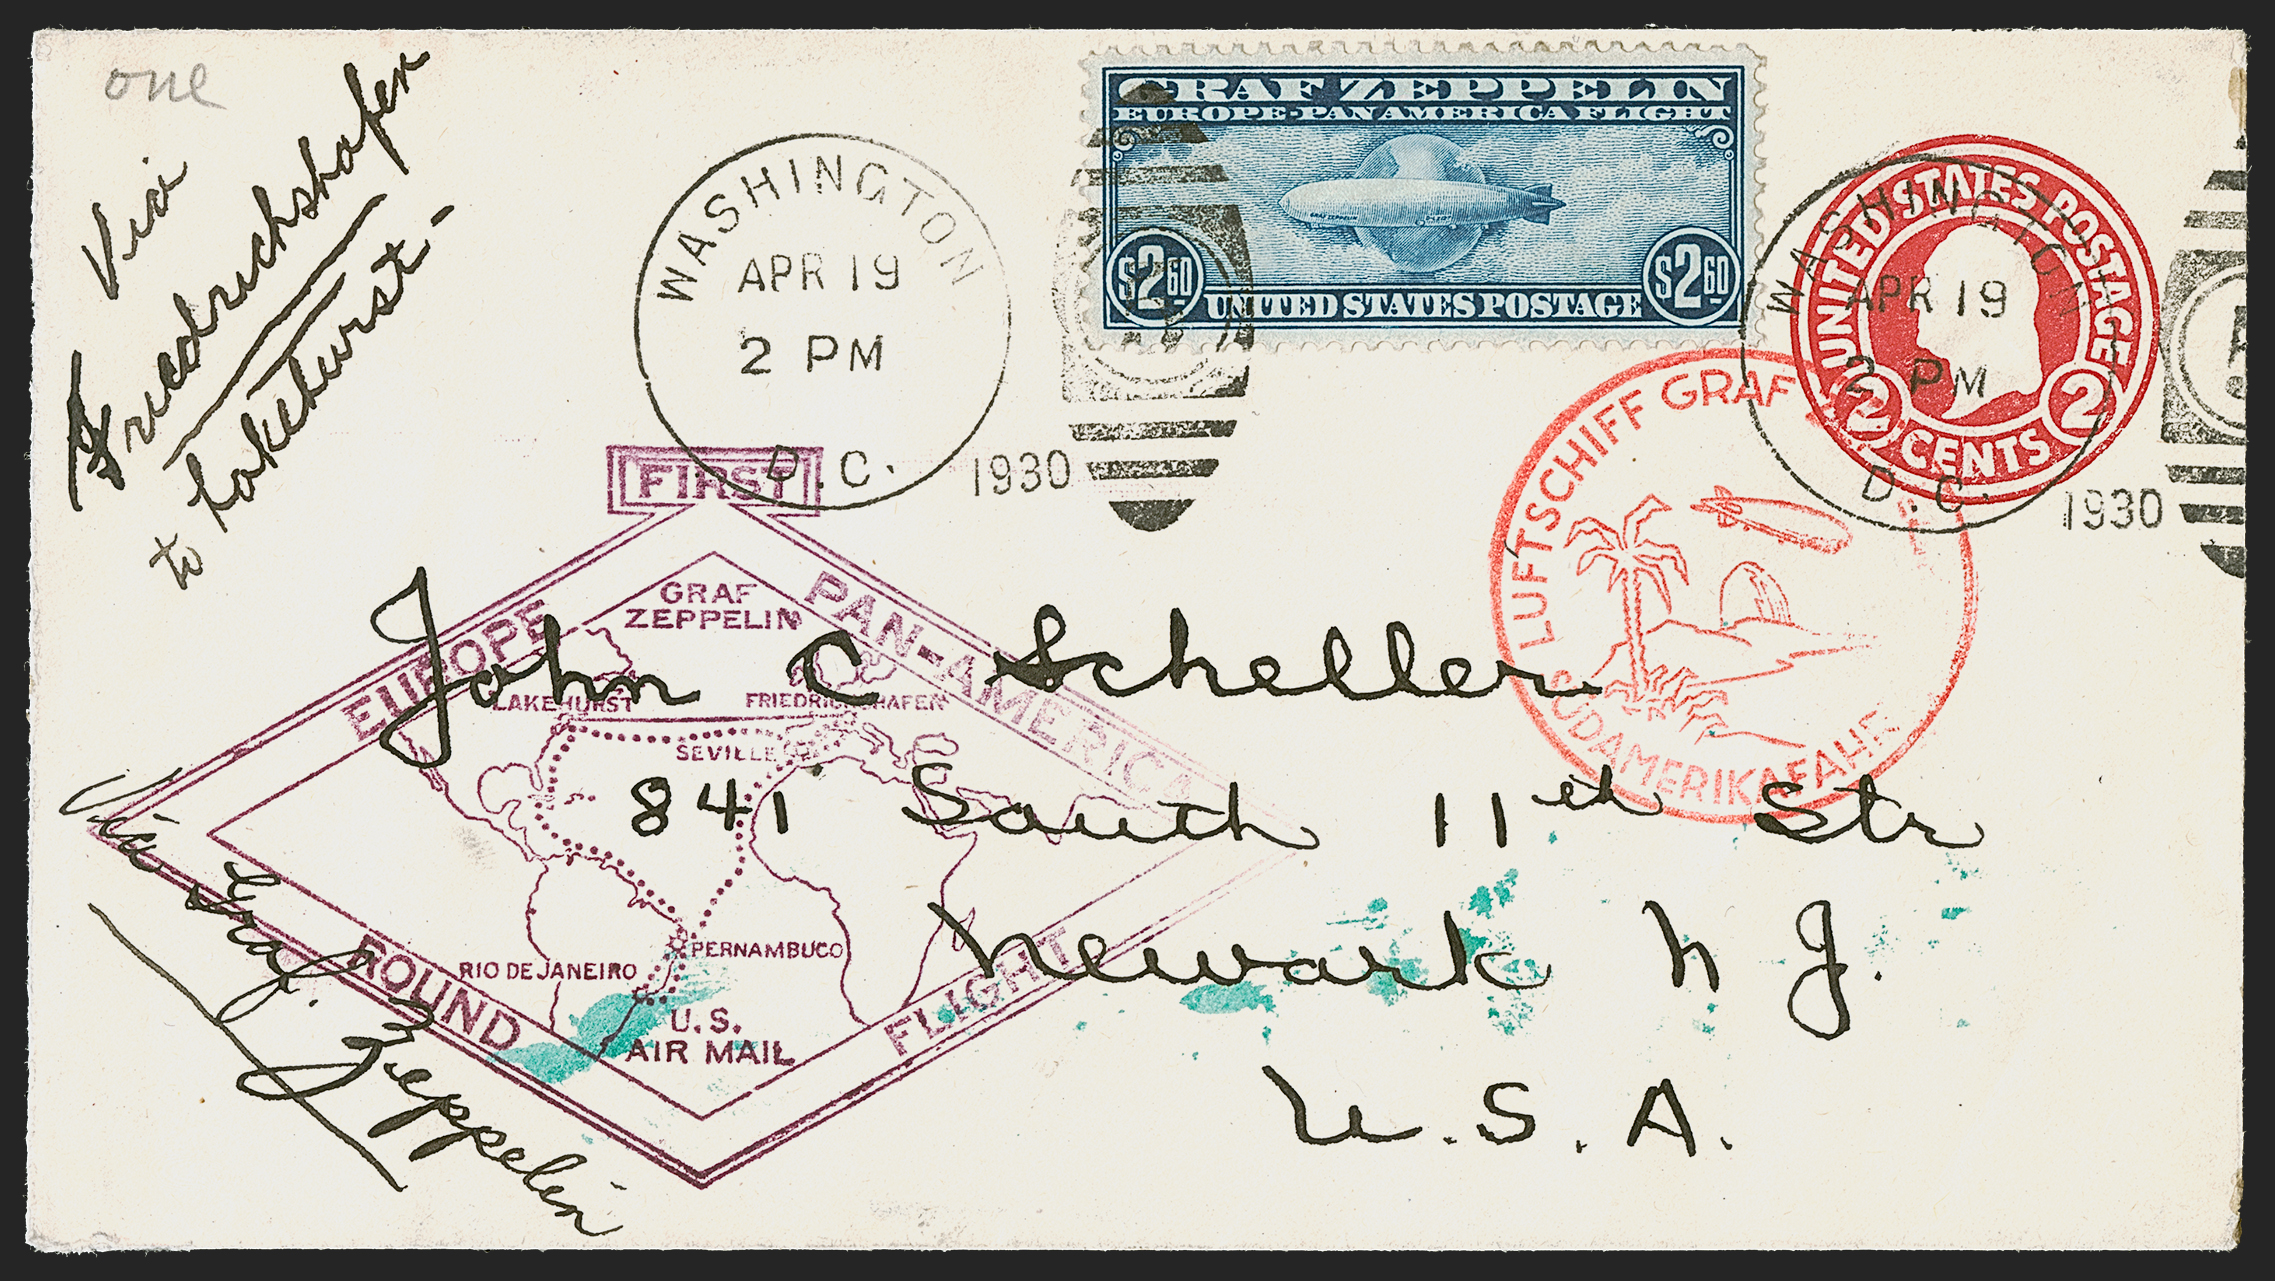 one
Via
Friedrichshafen
to Lakehurst-
WASHINGTON
APR 19
2 PM
D.C.
1930
GRAF ZEPPELIN
EUROPE-PAN AMERICA FLIGHT
GRAF ZEPPELIN
$2.60
$2.60
UNITED STATES POSTAGE
UNITED STATES POSTAGE
2
2
CENTS
WASHINGTON
APR 19
2 PM
D.C.
1930
LUFTSCHIFF GRAF
SÜDAMERIKAFAHRT
FIRST
EUROPE
PAN-AMERICA
ROUND
FLIGHT
GRAF
ZEPPELIN
LAKEHURST
FRIEDRICHSHAFEN
SEVILLE
PERNAMBUCO
RIO DE JANEIRO
U.S.
AIR MAIL
John C Scheller
841 South 11th Str
Newark N J.
U.S.A.
Via Graf. Zeppelin